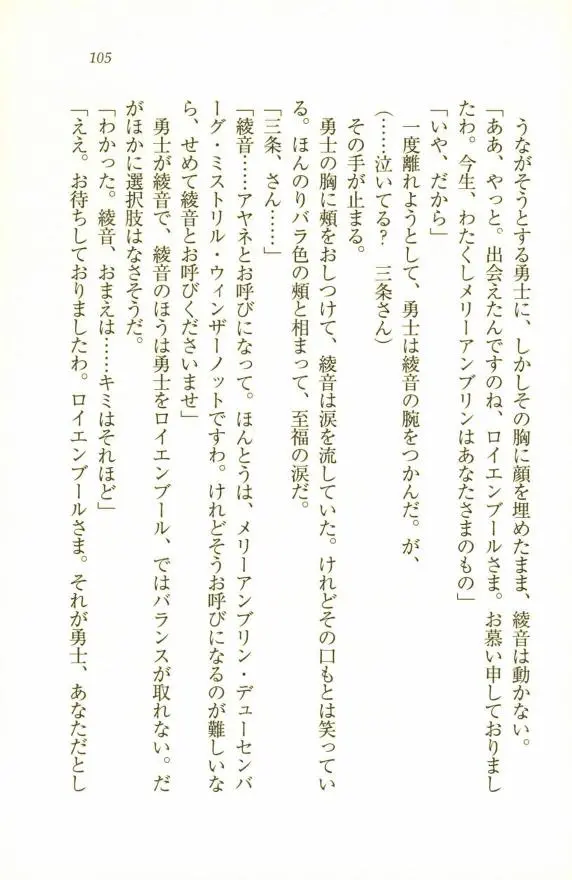 105
うながそうとする勇士に、しかしその胸に顔を埋めたまま、綾音は動かない。
「ああ、やっと。出会えたんですのね、ロイエンブールさま。お慕い申しておりまし
たわ。今生、わたくしメリーアンブリンはあなたさまのもの」
「いや、だから」
一度離れようとして、勇士は綾音の腕をつかんだ。が、
(……泣いてる？　三条さん)
その手が止まる。
勇士の胸に頰をおしつけて、綾音は涙を流していた。けれどその口もとは笑ってい
る。ほんのりバラ色の頰と相まって、至福の涙だ。
「三条、さん……」
「綾音……アヤネとお呼びになって。ほんとうは、メリーアンブリン・デューセンバ
ーグ・ミストリル・ウィンザーノットですわ。けれどそうお呼びになるのが難しいな
ら、せめて綾音とお呼びくださいませ」
勇士が綾音で、綾音のほうは勇士をロイエンブール、ではバランスが取れない。だ
がほかに選択肢はなさそうだ。
「わかった。綾音、おまえは……キミはそれほど」
「ええ。お待ちしておりましたわ。ロイエンブールさま。それが勇士、あなただとし